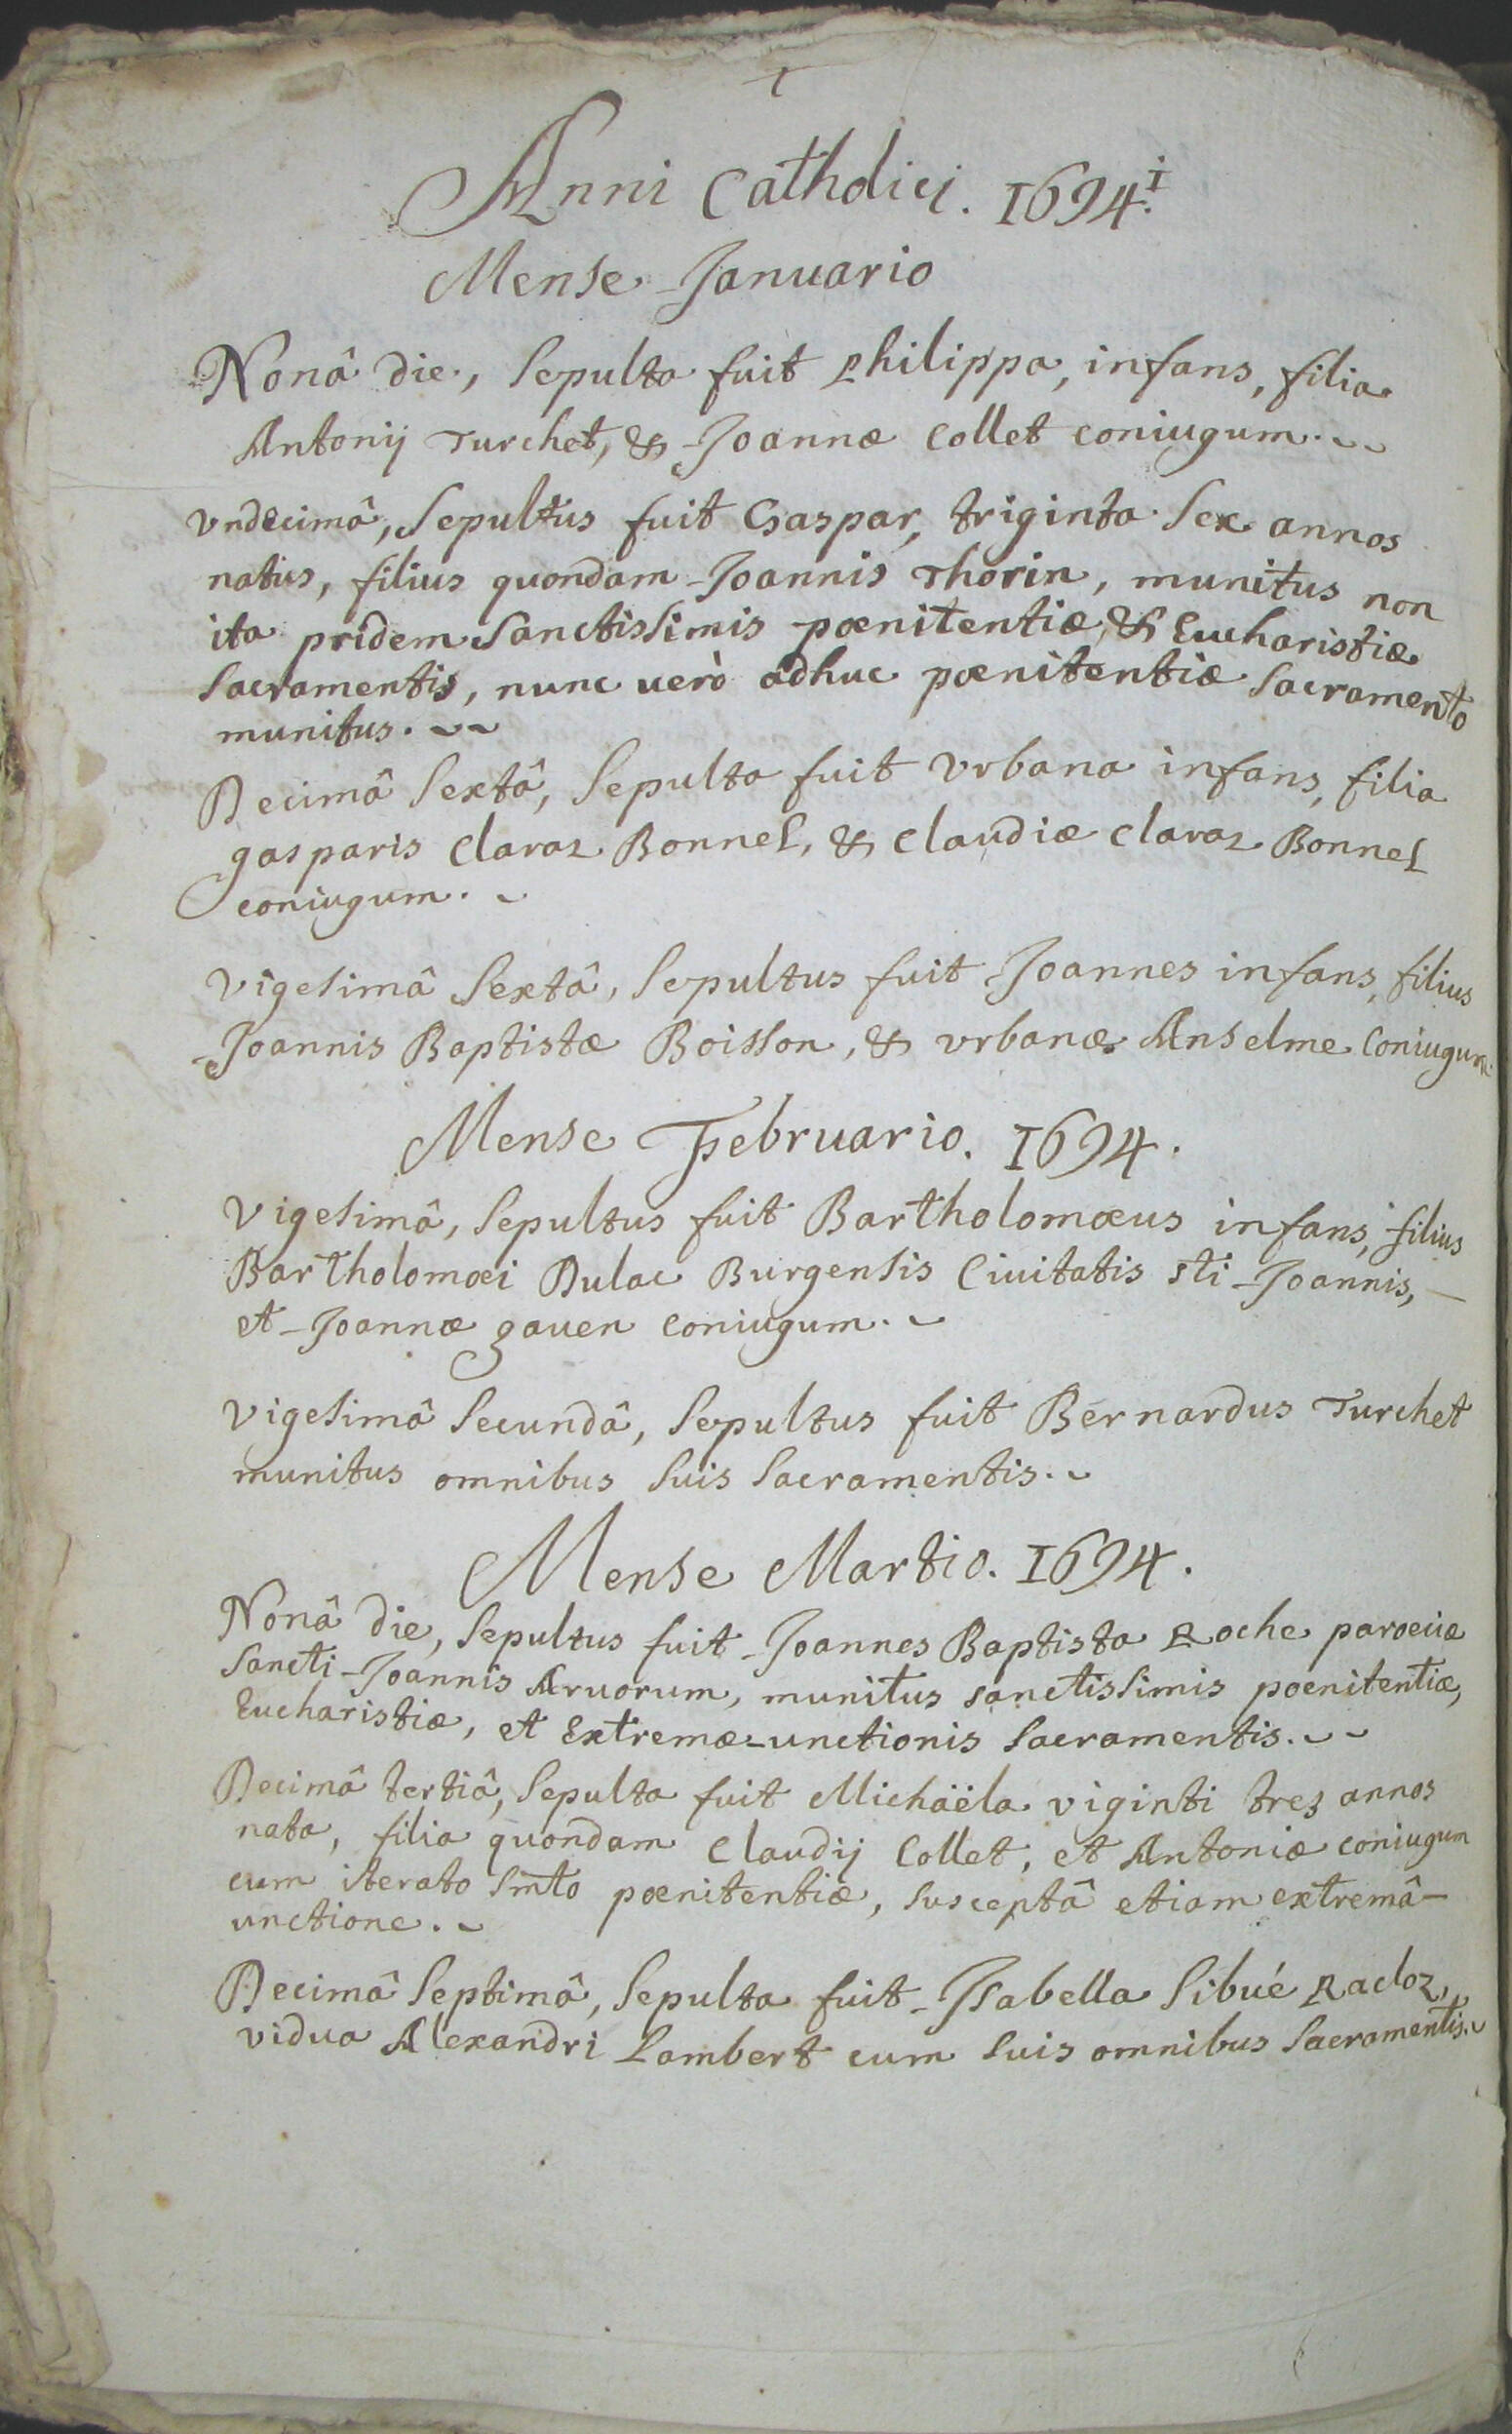 †
Anni Catholici. 1694.i
Mense Januario
Nonâ die, Sepulta fuit Philippa, infans, filia
Antonij Turchet, & Joannæ Collet coniugum.
Vndecimâ, Sepultus fuit Gaspar, triginta Sex annos
natus, filius quondam Joannis Thorin, munitus non
ita pridem Sanctissimis pœnitentiæ, & Eucharistiæ
Sacramentis, nunc uerò adhuc pœnitentiæ Sacramento
munitus.
Decimâ Sextâ, Sepulta fuit Vrbana infans, filia
gasparis Claraz Bonnel, & Claudiæ Claraz Bonnel
coniugum.
Vigesimâ Sextâ, Sepultus fuit Joannes infans, filius
Joannis Baptistæ Boisson, & vrbanæ Anselme Coniugum.
Mense Februario. 1694.
Vigesimâ, Sepultus fuit Bartholomæus infans, filius
Bartholomæi Dulac Burgensis Ciuitatis sti Joannis,
et Joannæ gauen coniugum.
Vigesimâ Secundâ, Sepultus fuit Bernardus Turchet
munitus omnibus Suis Sacramentis.
Mense Martio. 1694.
Nonâ die, Sepultus fuit Joannes Baptista Roche parœciæ
Sancti Joannis Aruorum, munitus sanctissimis pœnitentiæ,
Eucharistiæ, et Extremæ-unctionis Sacramentis.
Decimâ tertiâ, Sepulta fuit Michaëla viginti tres annos
nata, filia quondam Claudij Collet, et Antoniæ coniugum
cum iterato Smto pœnitentiæ, susceptâ etiam extremâ-
unctione.
Decimâ Septimâ, Sepulta fuit Isabella Sibué Racloz,
vidua Alexandri Lambert cum Suis omnibus Sacramentis.